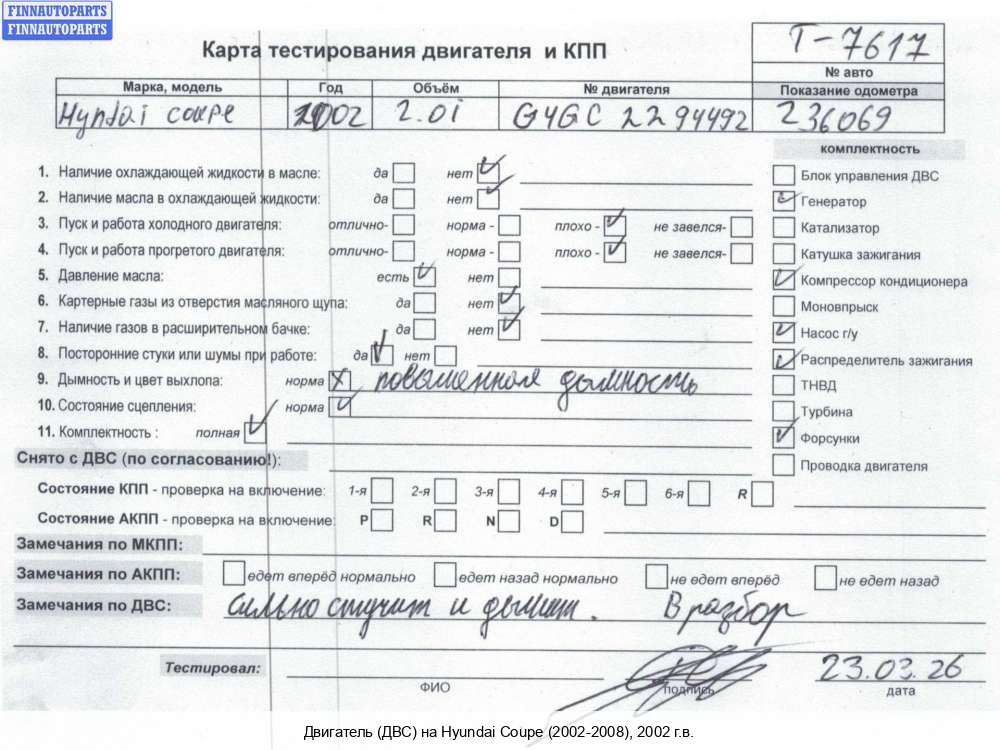 FINNAUTOPARTS
FINNAUTOPARTS
T-7617
Карта тестирования двигателя и КПП
№ авто
Марка, модель Год Объём № двигателя Показание одометра
Hyndai coupe 2002 2.0i G4GC 2294492 236069
комплектность
1. Наличие охлаждающей жидкости в масле: да нет
Блок управления ДВС
2. Наличие масла в охлаждающей жидкости: да нет
Генератор
3. Пуск и работа холодного двигателя: отлично- норма - плохо - не завелся-
Катализатор
4. Пуск и работа прогретого двигателя: отлично- норма - плохо - не завелся-
Катушка зажигания
5. Давление масла: есть нет
Компрессор кондиционера
6. Картерные газы из отверстия масляного щупа: да нет
Моновпрыск
7. Наличие газов в расширительном бачке: да нет
Насос г/у
8. Посторонние стуки или шумы при работе: да нет
Распределитель зажигания
9. Дымность и цвет выхлопа: норма X повышенная дымность
ТНВД
10. Состояние сцепления: норма
Турбина
11. Комплектность : полная
Форсунки
Снято с ДВС (по согласованию!):
Проводка двигателя
Состояние КПП - проверка на включение: 1-я 2-я 3-я 4-я 5-я 6-я R
Состояние АКПП - проверка на включение: P R N D
Замечания по МКПП:
Замечания по АКПП: едет вперёд нормально едет назад нормально не едет вперёд не едет назад
Замечания по ДВС: сильно стучит и дымит. В разбор
Тестировал: 23.03.26
ФИО подпись дата
Двигатель (ДВС) на Hyundai Coupe (2002-2008), 2002 г.в.